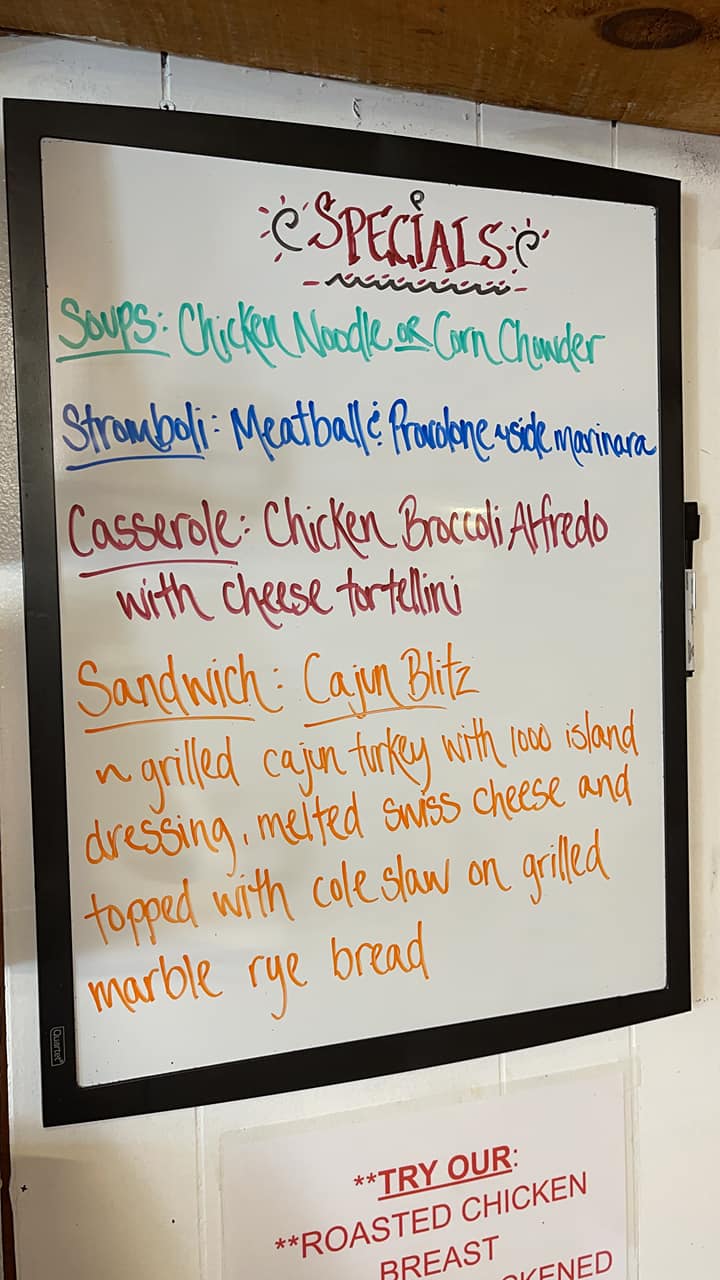 SPECIALS
Soups: Chicken Noodle or Corn Chowder
Stromboli: Meatball & Provolone ~side marinara
Casserole: Chicken Broccoli Alfredo
with cheese tortellini
Sandwich: Cajun Blitz
~ grilled cajun turkey with 1000 island
dressing, melted swiss cheese and
topped with cole slaw on grilled
marble rye bread
Quartet
**TRY OUR:
**ROASTED CHICKEN
BREAST